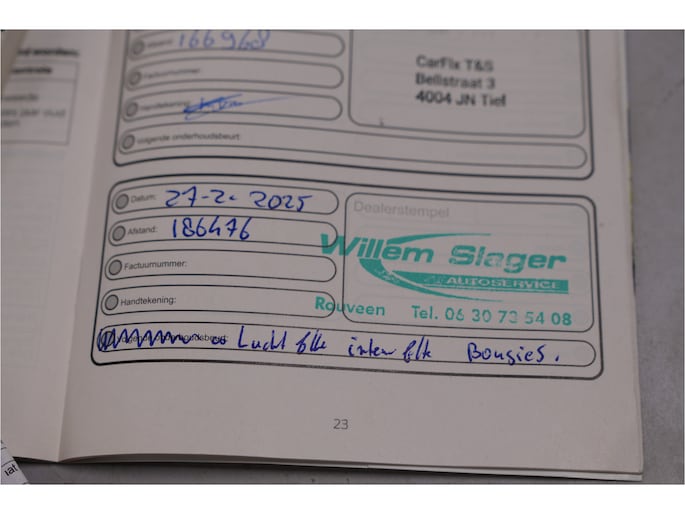 Afstand: 166968
CarFix T&S
Factuurnummer:
Bellstraat 3
4004 JN Tiel
Handtekening:
Volgende onderhoudsbeurt:
Datum: 27-2-2025
Dealerstempel
Afstand: 186476
Willem Slager
AUTOSERVICE
Factuurnummer:
Handtekening:
Rouveen Tel. 06 30 73 54 08
Lucht filte interieur filte Bougies.
23